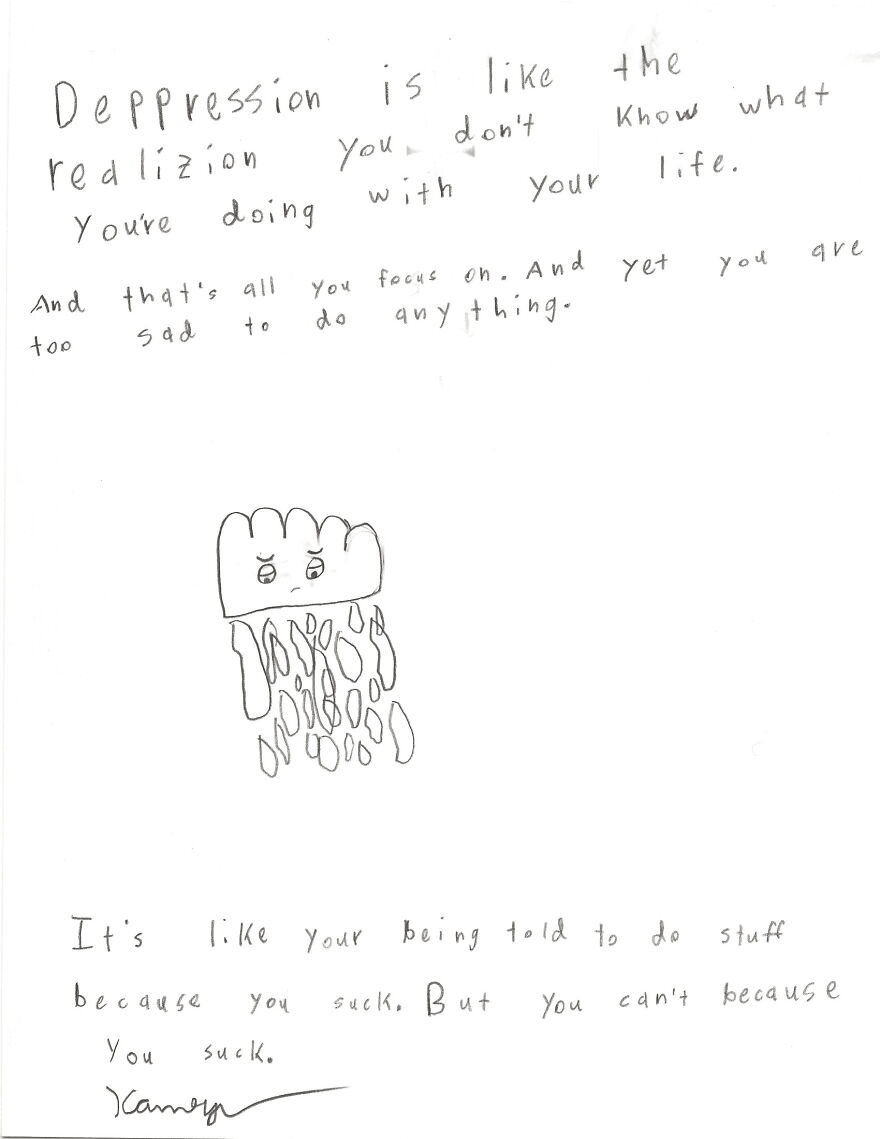 Deppression is like the
realizion you don't know what
you're doing with your life.
And that's all you focus on. And yet you are
too sad to do anything.
It's like your being told to do stuff
because you suck. But you can't because
you suck.